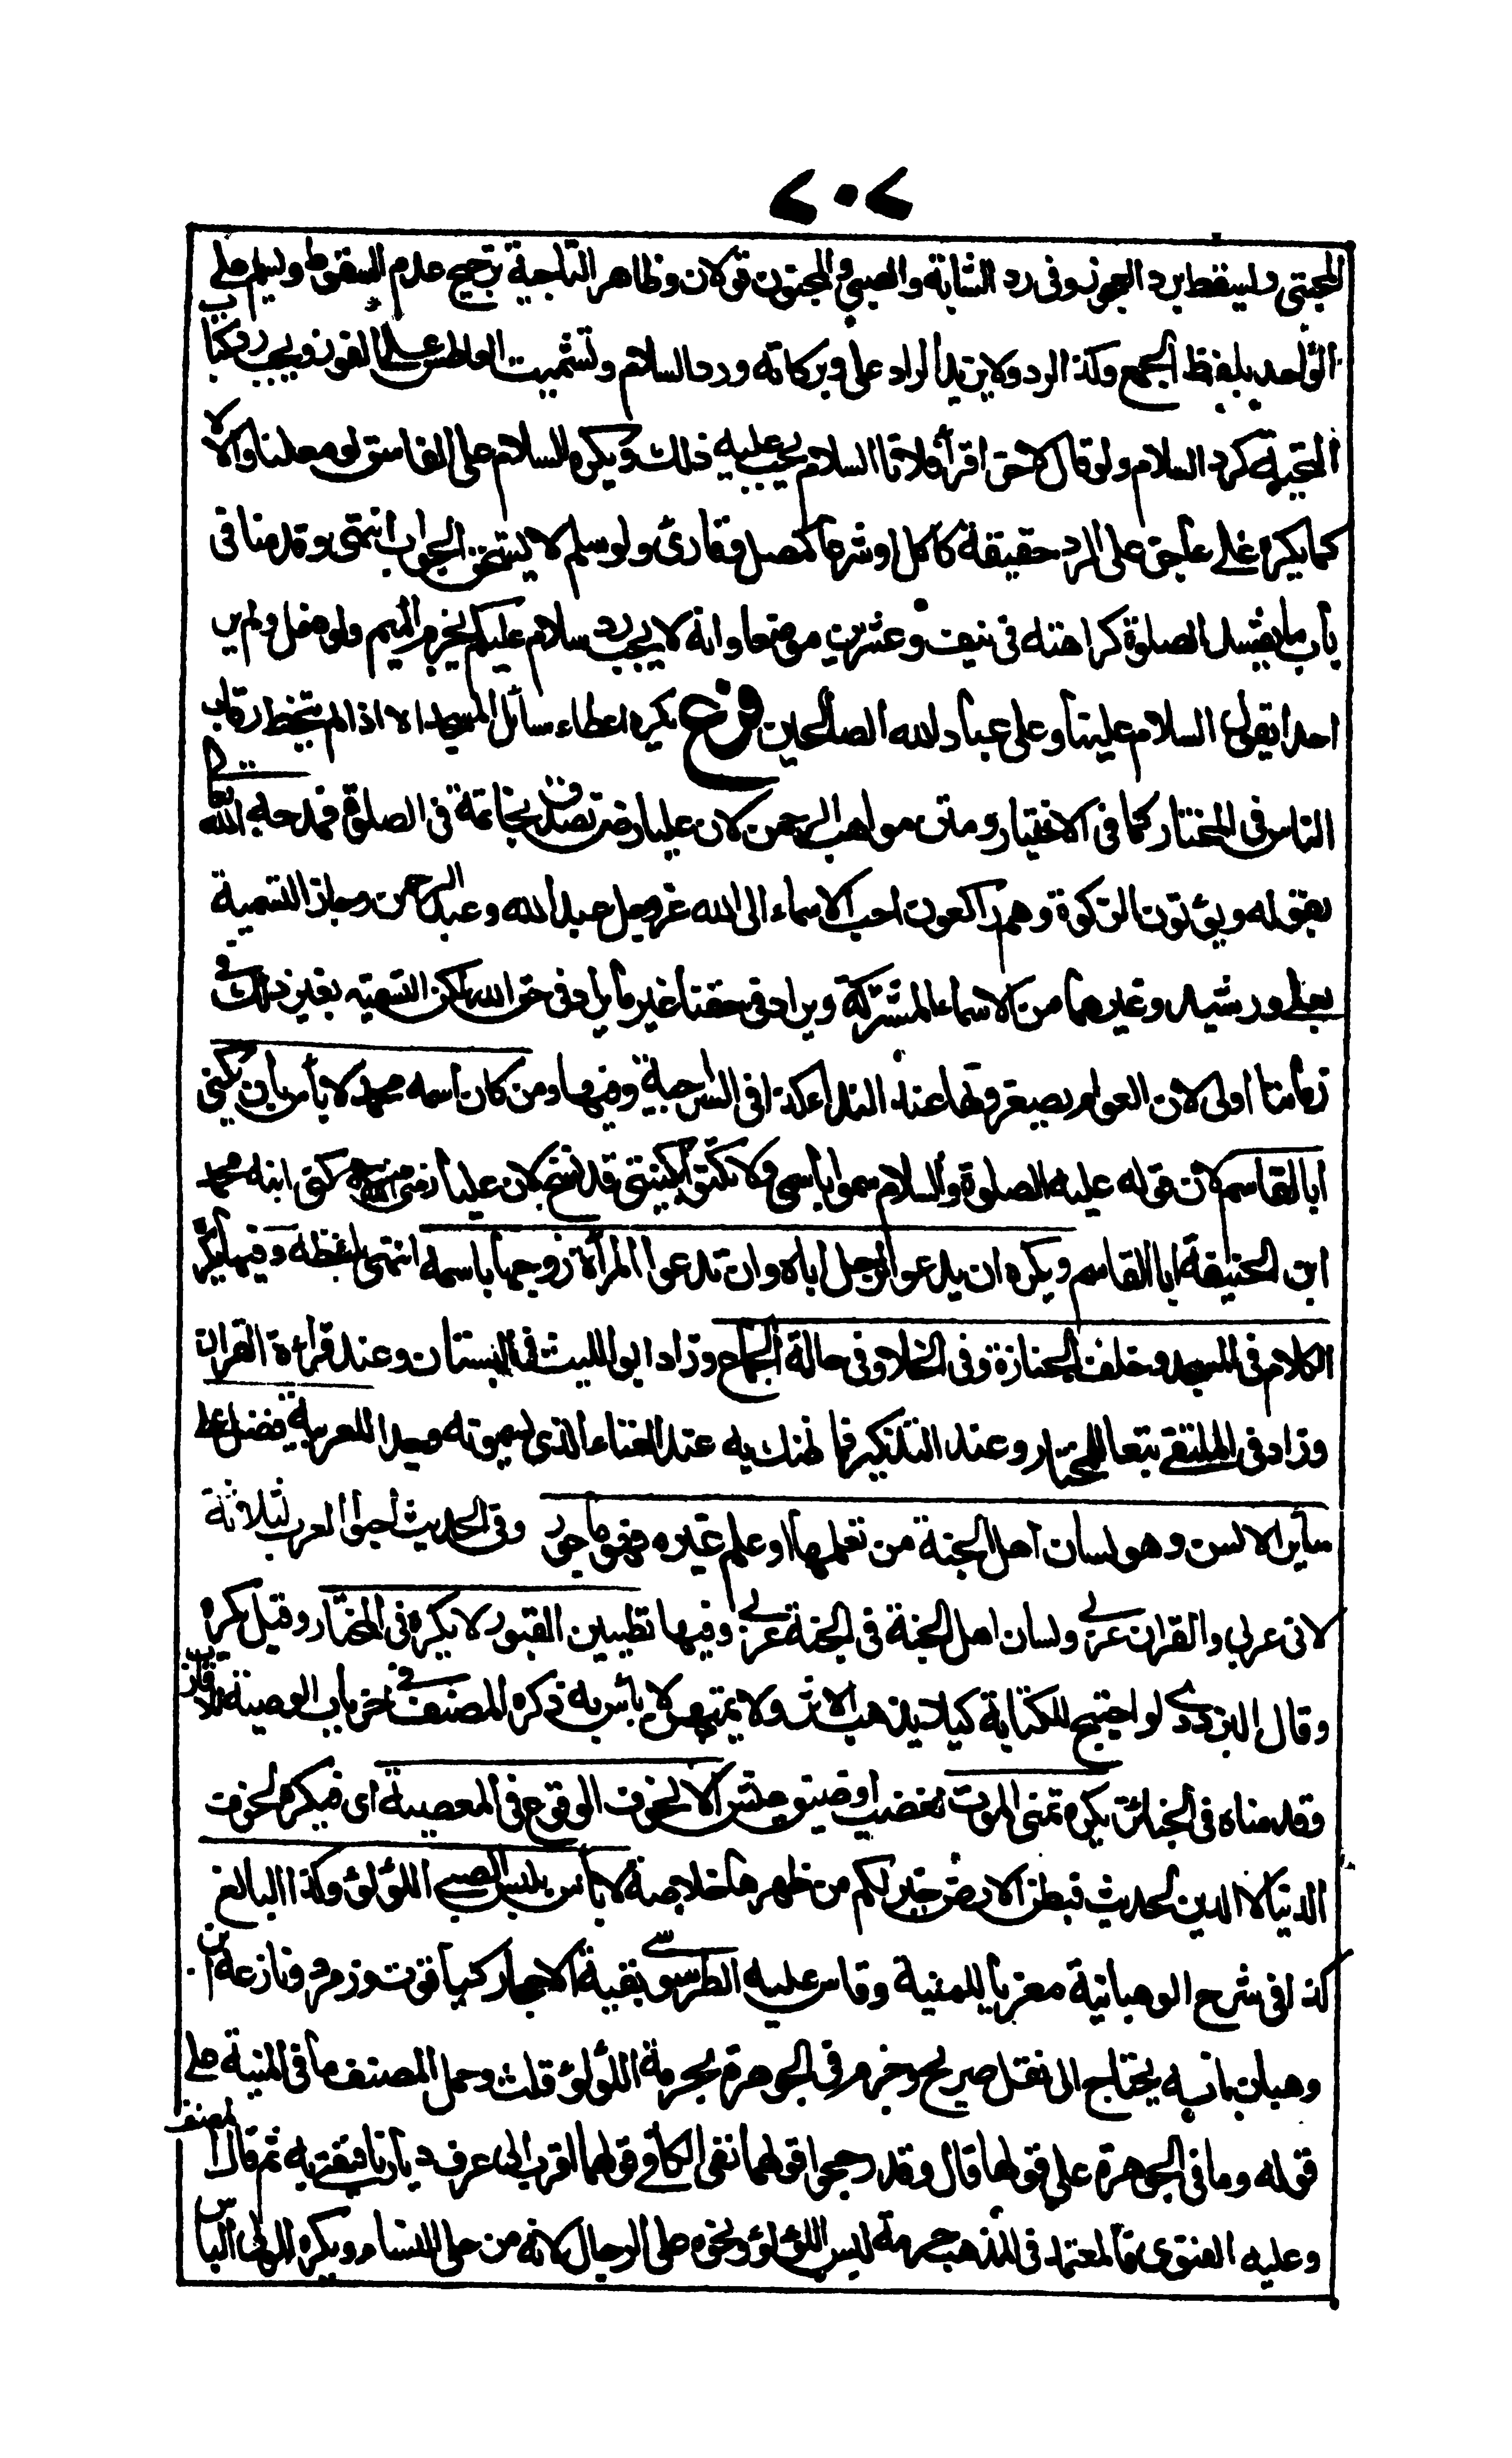 ٢٠٢
المجتبى ويسقط برد العجوز وفى رد الشابة والصبى والمجنون قولان وظاهر التاجية ترجيح عدم السقوط ويسلم على
الواحد بلفظ الجمع وكذا الرد ولا يزيد الراد على وبركاته ورد السلام وتشميت العاطس على الفور ويجب رد كتاب
التحية كرد السلام ولو قال لاخر اقرأ فلانا السلام يجب عليه ذلك ويكره السلام على الفاسق لو معلنا والا لا
كما يكره على عاجز على الرد حقيقة كاكل او شرعا كمصل وقارئ ولو سلم لا يستحق الجواب انتهى وقدمنا فى
باب ما يفسد الصلوة كراهته فى نيف وعشرين موضعا وانه لا يجب رد سلام عليكم بجزم الميم ولو دخل ولم ير
احدا يقول السلام علينا وعلى عباد الله الصالحين فرع يكره اعطاء سائل المسجد الا اذا لم يتخط رقاب
الناس فى المختار كما فى الاختيار ومتن مواهب الرحمن لان عليا رضـ تصدق بخاتمه فى الصلوة فمدحه الله تعالى
بقوله ويؤتون الزكوة وهم راكعون احب الاسماء الى الله عز وجل عبد الله وعبد الرحمن وجاز التسمية
بعلى ورشيد وغيرهما من الاسماء المشتركة ويراد فى حقنا غير ما يراد فى حق الله لكن التسمية بغير ذلك فى
زماننا اولى لان العوام يصغرونها عند النداء كذا فى السراجية وفيها ومن كان اسمه محمد لا بأس بان يكنى
ابا القاسم لان قوله عليه الصلوة والسلام سموا باسمى ولا تكنوا بكنيتى قد نسخ لان عليا رضى الله عنه كنى ابنه محمد
ابن الحنيفة ابا القاسم ويكره ان يدعو الرجل اباه وان تدعوا المرأة زوجها باسمه انتهى بلفظه وفيها يكره
الكلام فى المسجد وخلف الجنازة وفى الخلا وفى حالة الجماع وزاد ابو الليث فى البستان وعند قرائة القران
وزاد فى الملتقى تبعا للمختار وعند التذكير فما ظنك به عند الغناء الذى يسمونه وجدا للعربية فضل على
سائر الالسن وهو لسان اهل الجنة من تعلمها او علم غيره فهو ماجور وفى الحديث احبوا العرب لثلاثة
لانى عربى والقران عربى ولسان اهل الجنة فى الجنة عربى وفيها تطيين القبور لا يكره فى المختار وقيل يكره
وقال البزدوى لو احتيج للكتابة كيلا يذهب الاثر ولا يمتهن لا بأس به ذكره المصنف فى اخر باب الوصية للاقارب
وقدمناه فى الجنائز يكره تمنى الموت لغضب او ضيق عيش الا لخوف الوقوع فى المعصية اى فيكره لخوف
الدنيا لا الدين لحديث فبطن الارض خير لكم من ظهرها خلاصة لا بأس بلبس الصبى اللؤلؤ وكذا البالغ
كذا فى شرح الوهبانية معزيا للمنية وقاس عليه الطرسوسى بقية الاحجار كياقوت وزمرد ونازعه ابن
وهبان بانه يحتاج الى نقل صريح وجزم فى الجوهرة بحرمة اللؤلؤ قلت وحمل المصنف ما فى المنية على
قوله وما فى الجوهرة على قولهما قال وقد رجحوا قولهما ففى الكافى قولهما اقرب الى عرف ديارنا فيفتى به ثم قال المصنف
وعليه الفتوى فالمعتمد فى المذهب حرمة لبس اللؤلؤ ونحوه على الرجال لانه من حلى النساء ويكره للولى الباس